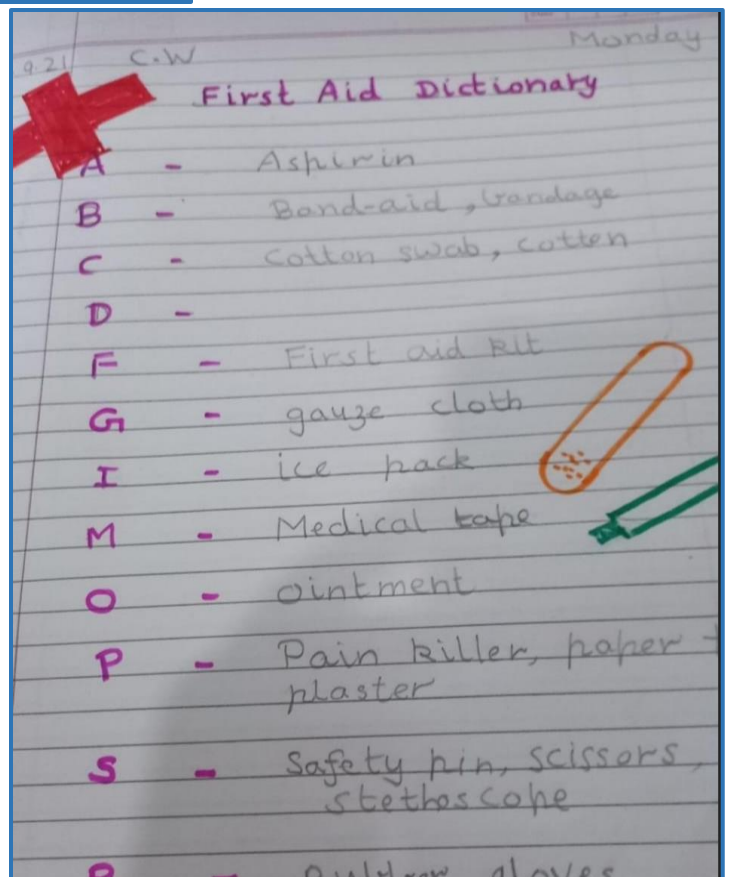 9.21 C.W Monday
First Aid Dictionary
A - Aspirin
B - Band-aid, bandage
C - Cotton swab, cotten
D -
F - First aid kit
G - gauze cloth
I - ice pack
M - Medical tape
O - ointment
P - Pain killer, paper
plaster
S - Safety pin, scissors,
stethoscope
gloves